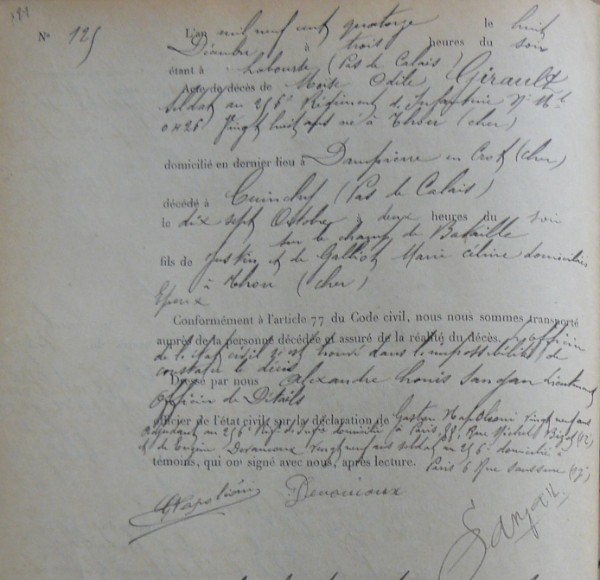 N° 125
L'an mil neuf cent quatorze le huit
Décembre à trois heures du soir
étant à Labourse (Pas de Calais)
Acte de décès de Moïse Odile Girault
soldat au 256e Régiment d'Infanterie N° Ml
0426 Vingt huit ans né à Thou (Cher)
domicilié en dernier lieu à Dampierre en Crot (Cher)
décédé à Cuinchy (Pas de Calais)
le dix sept Octobre à deux heures du soir
sur le champ de Bataille
fils de Justin et de Galliot Marie Céline domiciliés
à Thou (Cher)
Epoux
Conformément à l'article 77 du Code civil, nous nous sommes transporté
auprès de la personne décédée et assuré de la réalité du décès. l'officier
de l'état civil s'est trouvé dans l'impossibilité de
constater le décès
Dressé par nous Alexandre Louis Lieutenant
Officier de Détails
officier de l'état civil, sur la déclaration de Gaston Napoléoni vingt neuf ans
au 256 Régt d'Infie domicilié à Paris Rue Michel Bizot (12e)
et de Eugène Devaucoux vingt neuf ans soldat au 256e domicilié à
témoins, qui ont signé avec nous, après lecture. Paris 6 Rue Saussure (17e)
Napoléoni Devaucoux